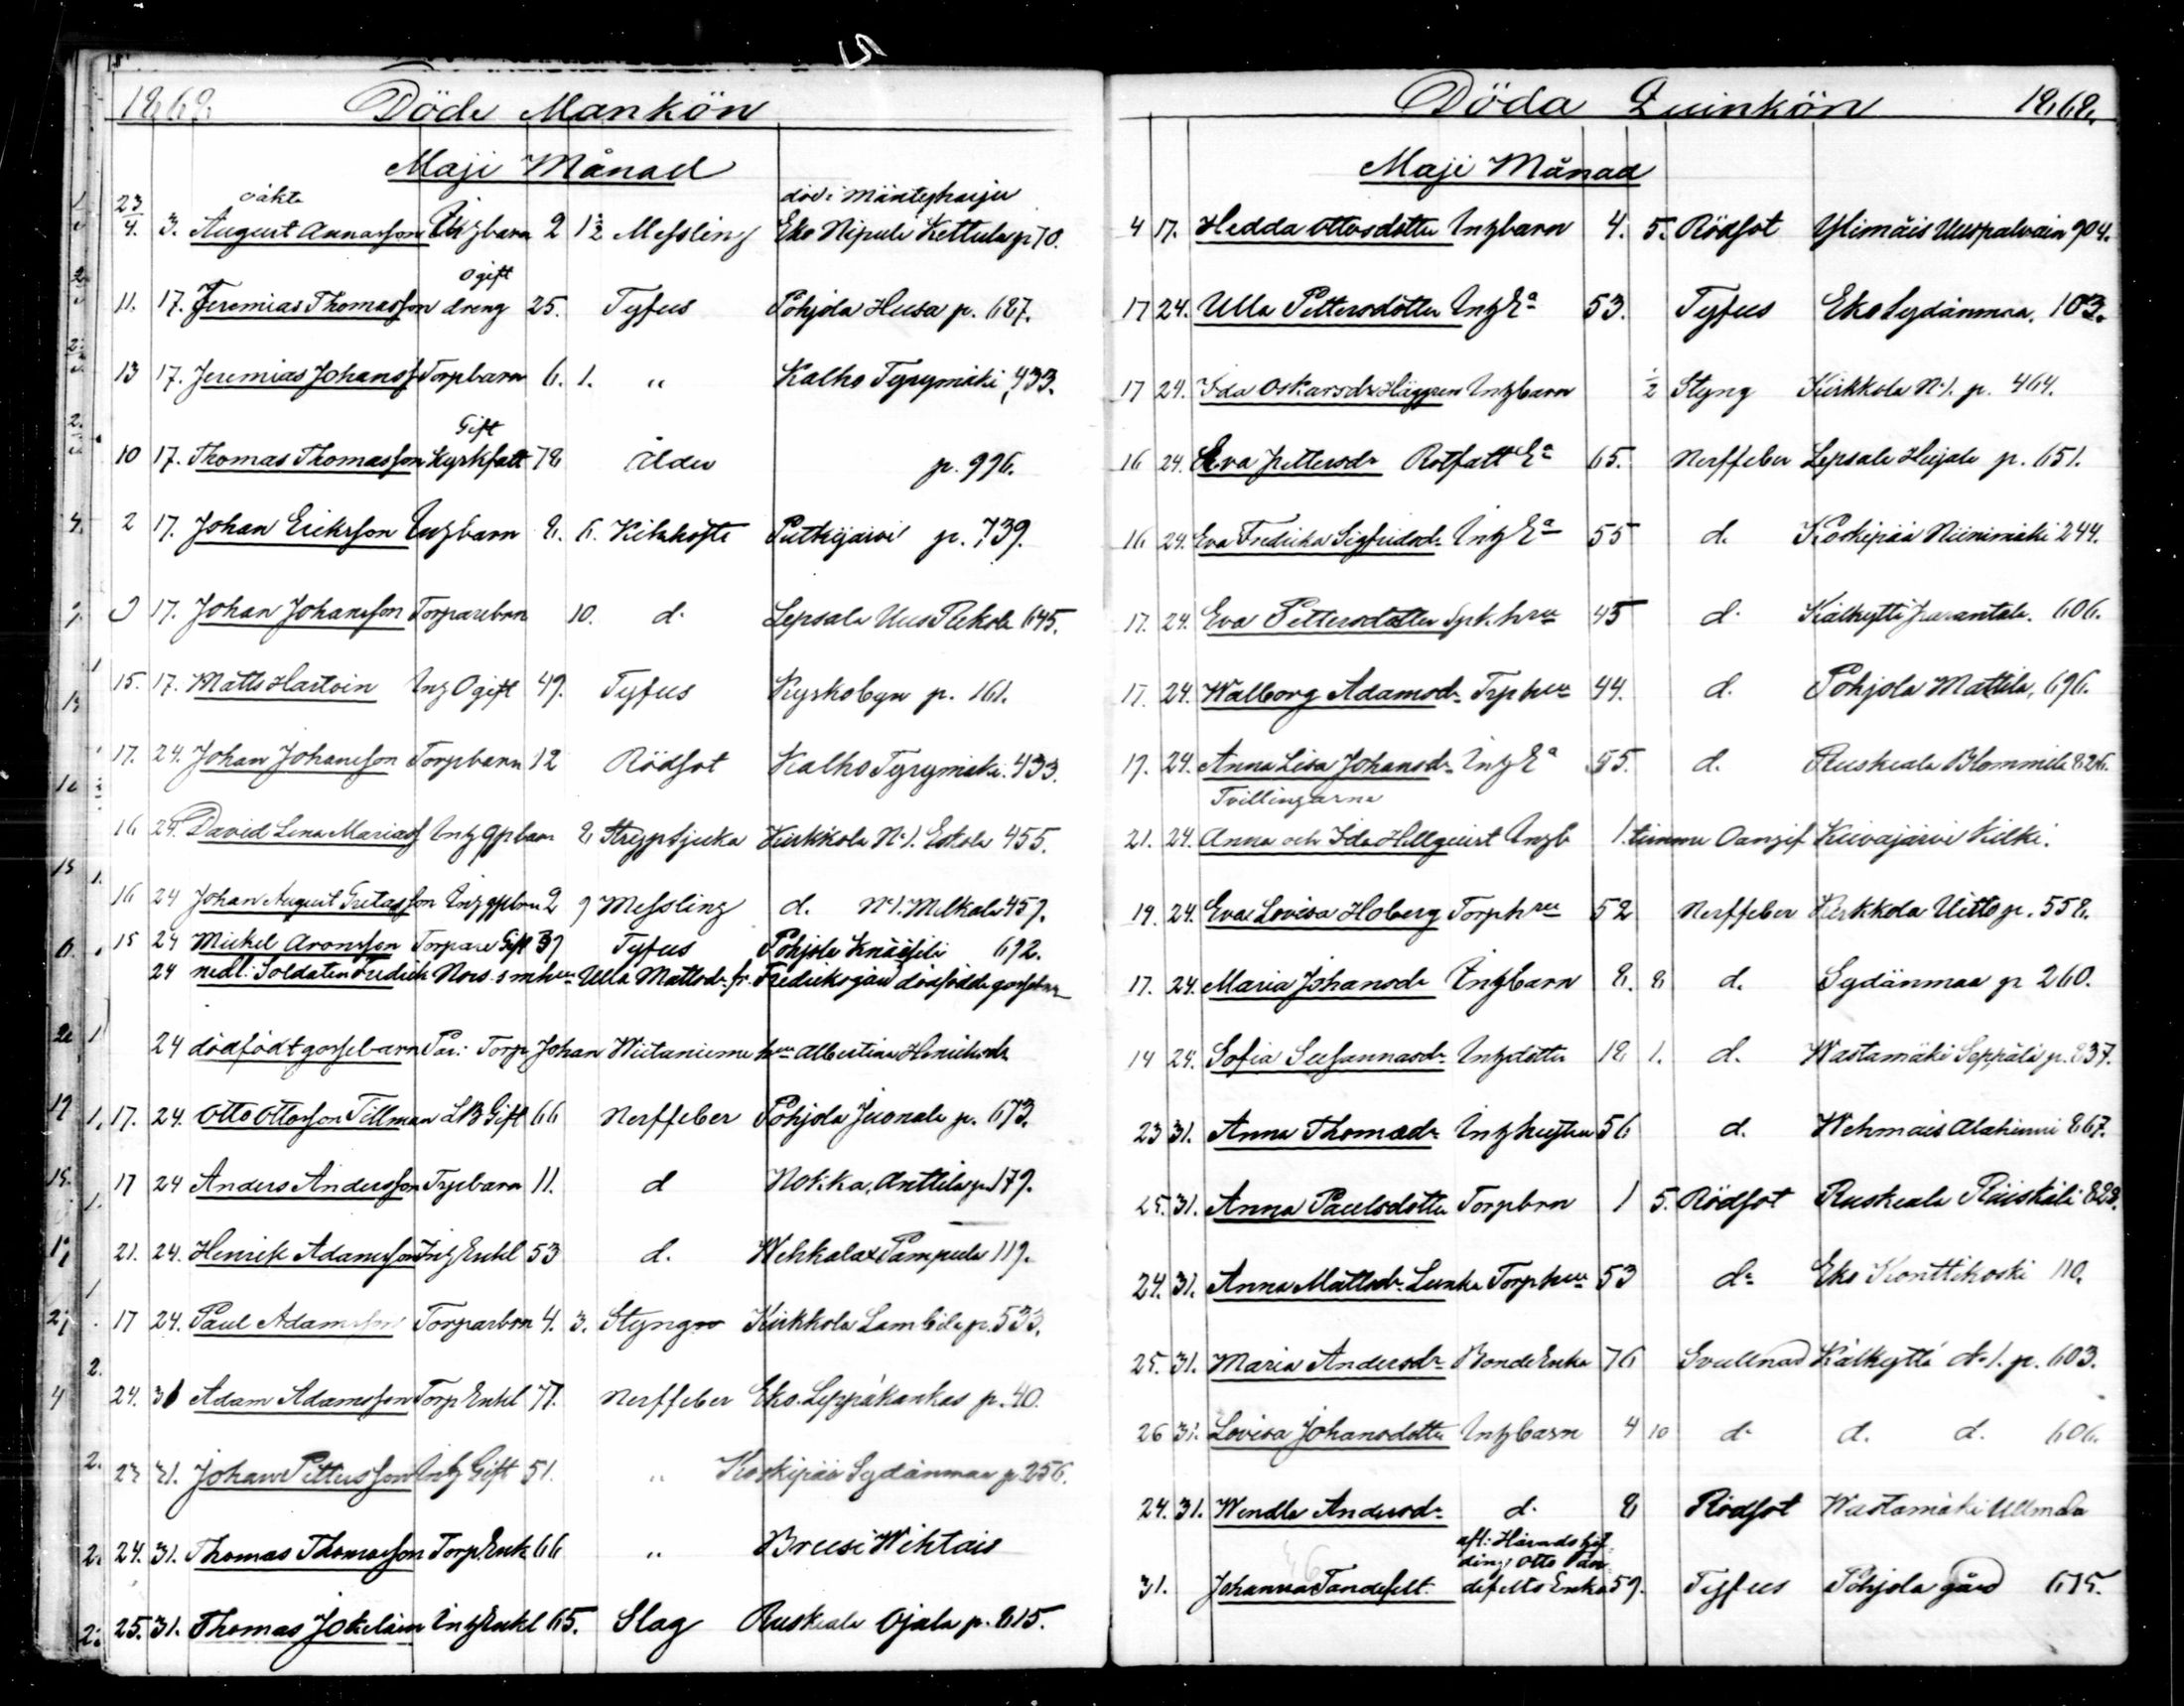 1868. Döde Mankön
Maji Månad
oäkta död i Mäntyharju
23/4. 3. August Annasson Inhbarn 2 1/2 Messling Eko Nipuli Kettula p 70.
Ogift
11. 17. Jeremias Thomasson dreng 25. Tyfus Pohjola Husa p. 687.
13 17. Jeremias Johanss Torpbarn 6. 1. " Kalho Tyrymäki, 433.
Gift
10 17. Thomas Thomasson Kyrkfatt 78 Ålder p. 996.
2 17. Johan Eriksson Inhbarn 8. 6. Kikhosta Putkijärvi p. 739.
17. Johan Johansson Torparebrn 10. d. Lepsala Uus Rekola 645.
15. 17. Matts Hartoin Inh Ogift 49. Tyfus Kyrkobyn p. 161.
17. 24. Johan Johansson Torpbarn 12 Rödsot Kalho Tyrymäki. 433.
16 24. David Lena Mariass Inh gpbarn 8 Strypsjuka Kirkkola No 1. Eskola 455.
16 24 Johan August Gretasson Inh gpbrn 2 9 Messling d. No 1. Melkala 457.
15 24 Mickel Aronsson Torpare Gift 39 Tyfus Pohjola 692.
24 nedl: Soldaten Fredrik Nors smhru Ulla Mattsdr fr. Fredriksgård dödfödde gossebarn
24 dödfödt gossebarn Par: Torp Johan Wiitaniemi hru Albertina Henriksdr
17. 24. Otto Ottosson Tillman Gift 66 Nerffeber Pohjola Juonala p. 673.
17 24 Anders Andersson Trpbarn 11. d Nokka, Anttila p 179.
21. 24. Henrik Adamsson Inh Enkl 53 d. Wehkalax Pampula 119.
17 24. Paul Adamsson Torparbrn 4. 3. Styng Kirkkola Lambila p. 533.
24. 31 Adam Adamsson Torp Enkl 77. Nerffeber Eko. Leppäkankas p. 40.
23 31. Johan Pettersson Inh Gift 51. " Koskipää Sydänmaa p 256.
24. 31. Thomas Thomasson Torp. Enk 66 " Bruusi Wihtais
25. 31. Thomas Jokelain Inh Enkl 65. Slag Ruskeala Ojala p. 815.
Döda Quinkön 1868.
Maji Månad
4 17. Hedda Ottosdotter Inhbarn 4. 5. Rödsot Ylimäis Uuspalvain 904.
17 24. Ulla Pettersdotter Inh Ea 53. Tyfus Eko Sydänmaa. 103.
17 24. Ida Oskarsdr Häggren Inhbarn 1/2 Styng Kirkkola No 1. p. 464.
16 24. Eva Pettersdr Rotfatt Ea 65. Nerffeber Lepsala Heijala p. 651.
16 24. Eva Fredrika Sigfridsdr Inh Ea 55 d. Koskipää Niinimäki 244.
17. 24. Eva Pettersdotter Spk. hru 45 d. Kälkyttä Jurantala. 606.
17. 24. Walborg Adamsdr Trp hru 44. d. Pohjola Mattila, 696.
19. 24. Anna Lisa Johansdr Inh Ea 55. d. Ruskeala Blommila 826.
Tvillingarne
21. 24. Anna och Ida Hellquist Inhb 1. timme Oangif Kuivajärvi Kilki.
19. 24. Eva Lovisa Hoberg Torphru 52 Nerffeber Kirkkola Uitto p. 558.
17. 24. Maria Johansdr Inhbarn 8. 8 d. Sydänmaa p 260.
14 24. Sofia Susannasdr Inhdotter 18 1. d. Wastamäki Seppälä p. 837.
23 31. Anna Thomasdr Inhhustru 56 d. Wehmais Alahinni 867.
25. 31. Anna Paulsdotter Torpbrn 1 5. Rödsot Ruskeala Räiskälä 828.
24. 31. Anna Mattsdr Lunka Torphru 53 dr Eko Konttikoski 110.
25. 31. Maria Andersdr Bonde Enka 76 Svullnad Kälkyttä No 1. p. 603.
26 31. Lovisa Johansdotter Inhbarn 4 10 d. d. d. 606.
24. 31. Wendla Andersdr d. 8 Rödsot Wastamäki Ullmala
afl: Häradshöf
ding: Otto Tan
31. Johanna Tandefelt defelts Enka 59. Tyfus Pohjola gård 615.